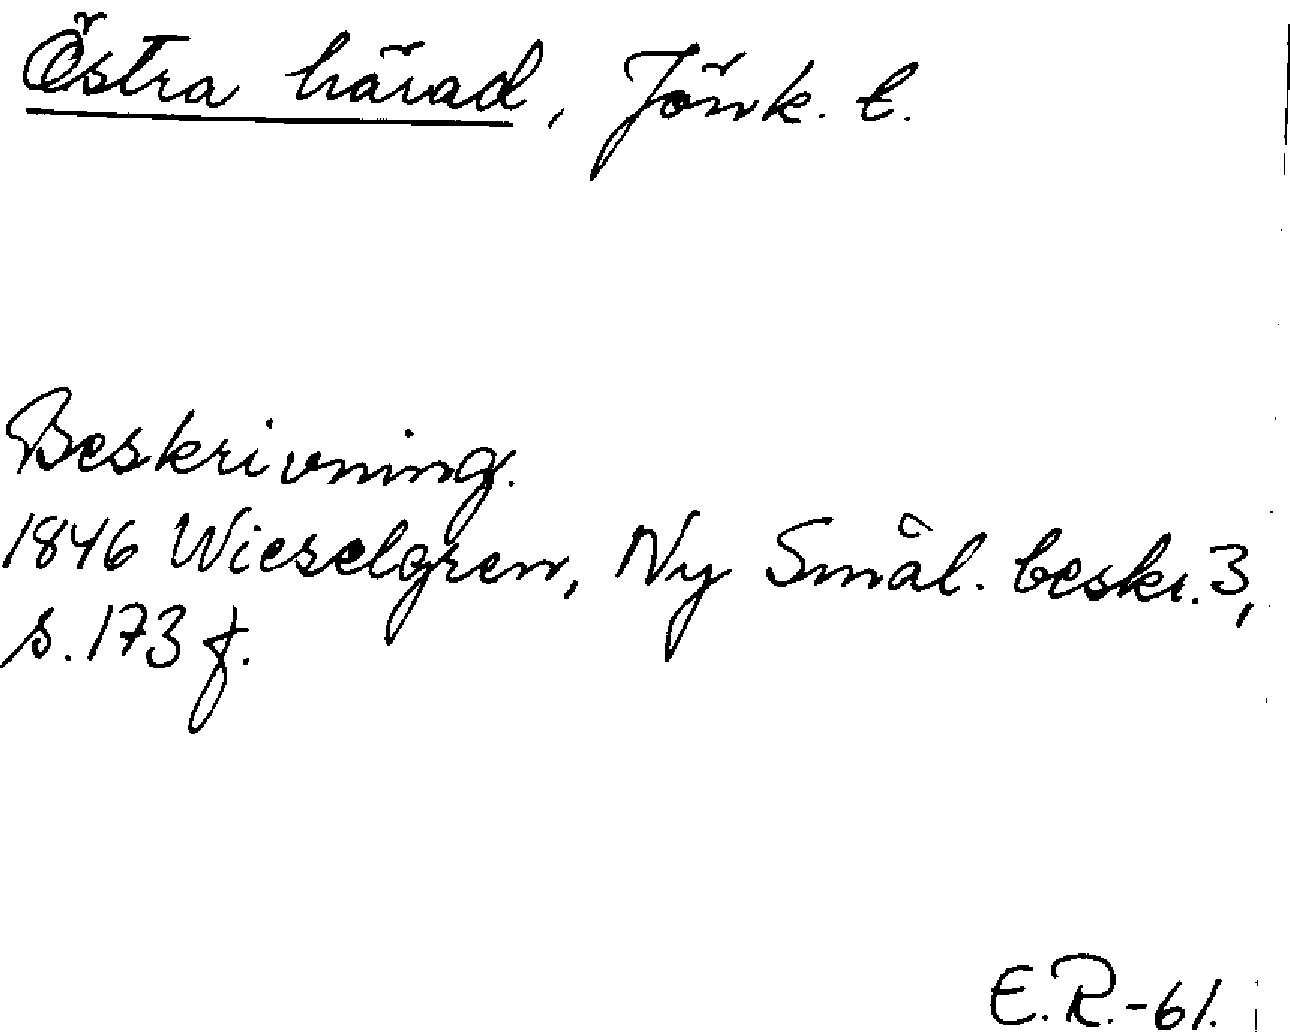 Östra härad, Jönk. l.
Beskrivning.
1846 Wieselgren, Ny Smål. beskr. 3,
s. 173 f.
E.R.-61.